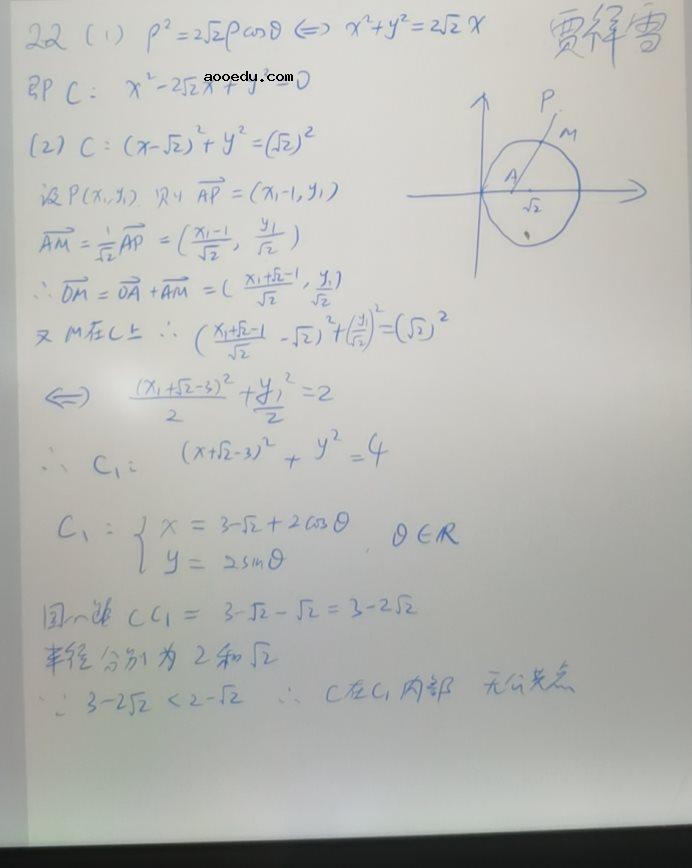 22 (1) ρ²=2√2ρcosθ ⟺ x²+y²=2√2x
贾祥雪
即 C: x²-2√2x+y²=0
aooedu.com
(2) C: (x-√2)²+y²=(√2)²
P
M
A
√2
设P(x₁,y₁) 则 AP→=(x₁-1, y₁)
AM→=1/√2 AP→=((x₁-1)/√2, y₁/√2)
∴ OM→=OA→+AM→=((x₁+√2-1)/√2, y₁/√2)
又 M在C上 ∴ ((x₁+√2-1)/√2-√2)²+(y₁/√2)²=(√2)²
⟺ (x₁+√2-3)²/2+y₁²/2=2
∴ C₁: (x+√2-3)²+y²=4
C₁: { x=3-√2+2cosθ
y=2sinθ , θ∈R
CC₁=3-√2-√2=3-2√2
半径分别为2和√2
∵ 3-2√2<2-√2 ∴ C在C₁内部 无公共点